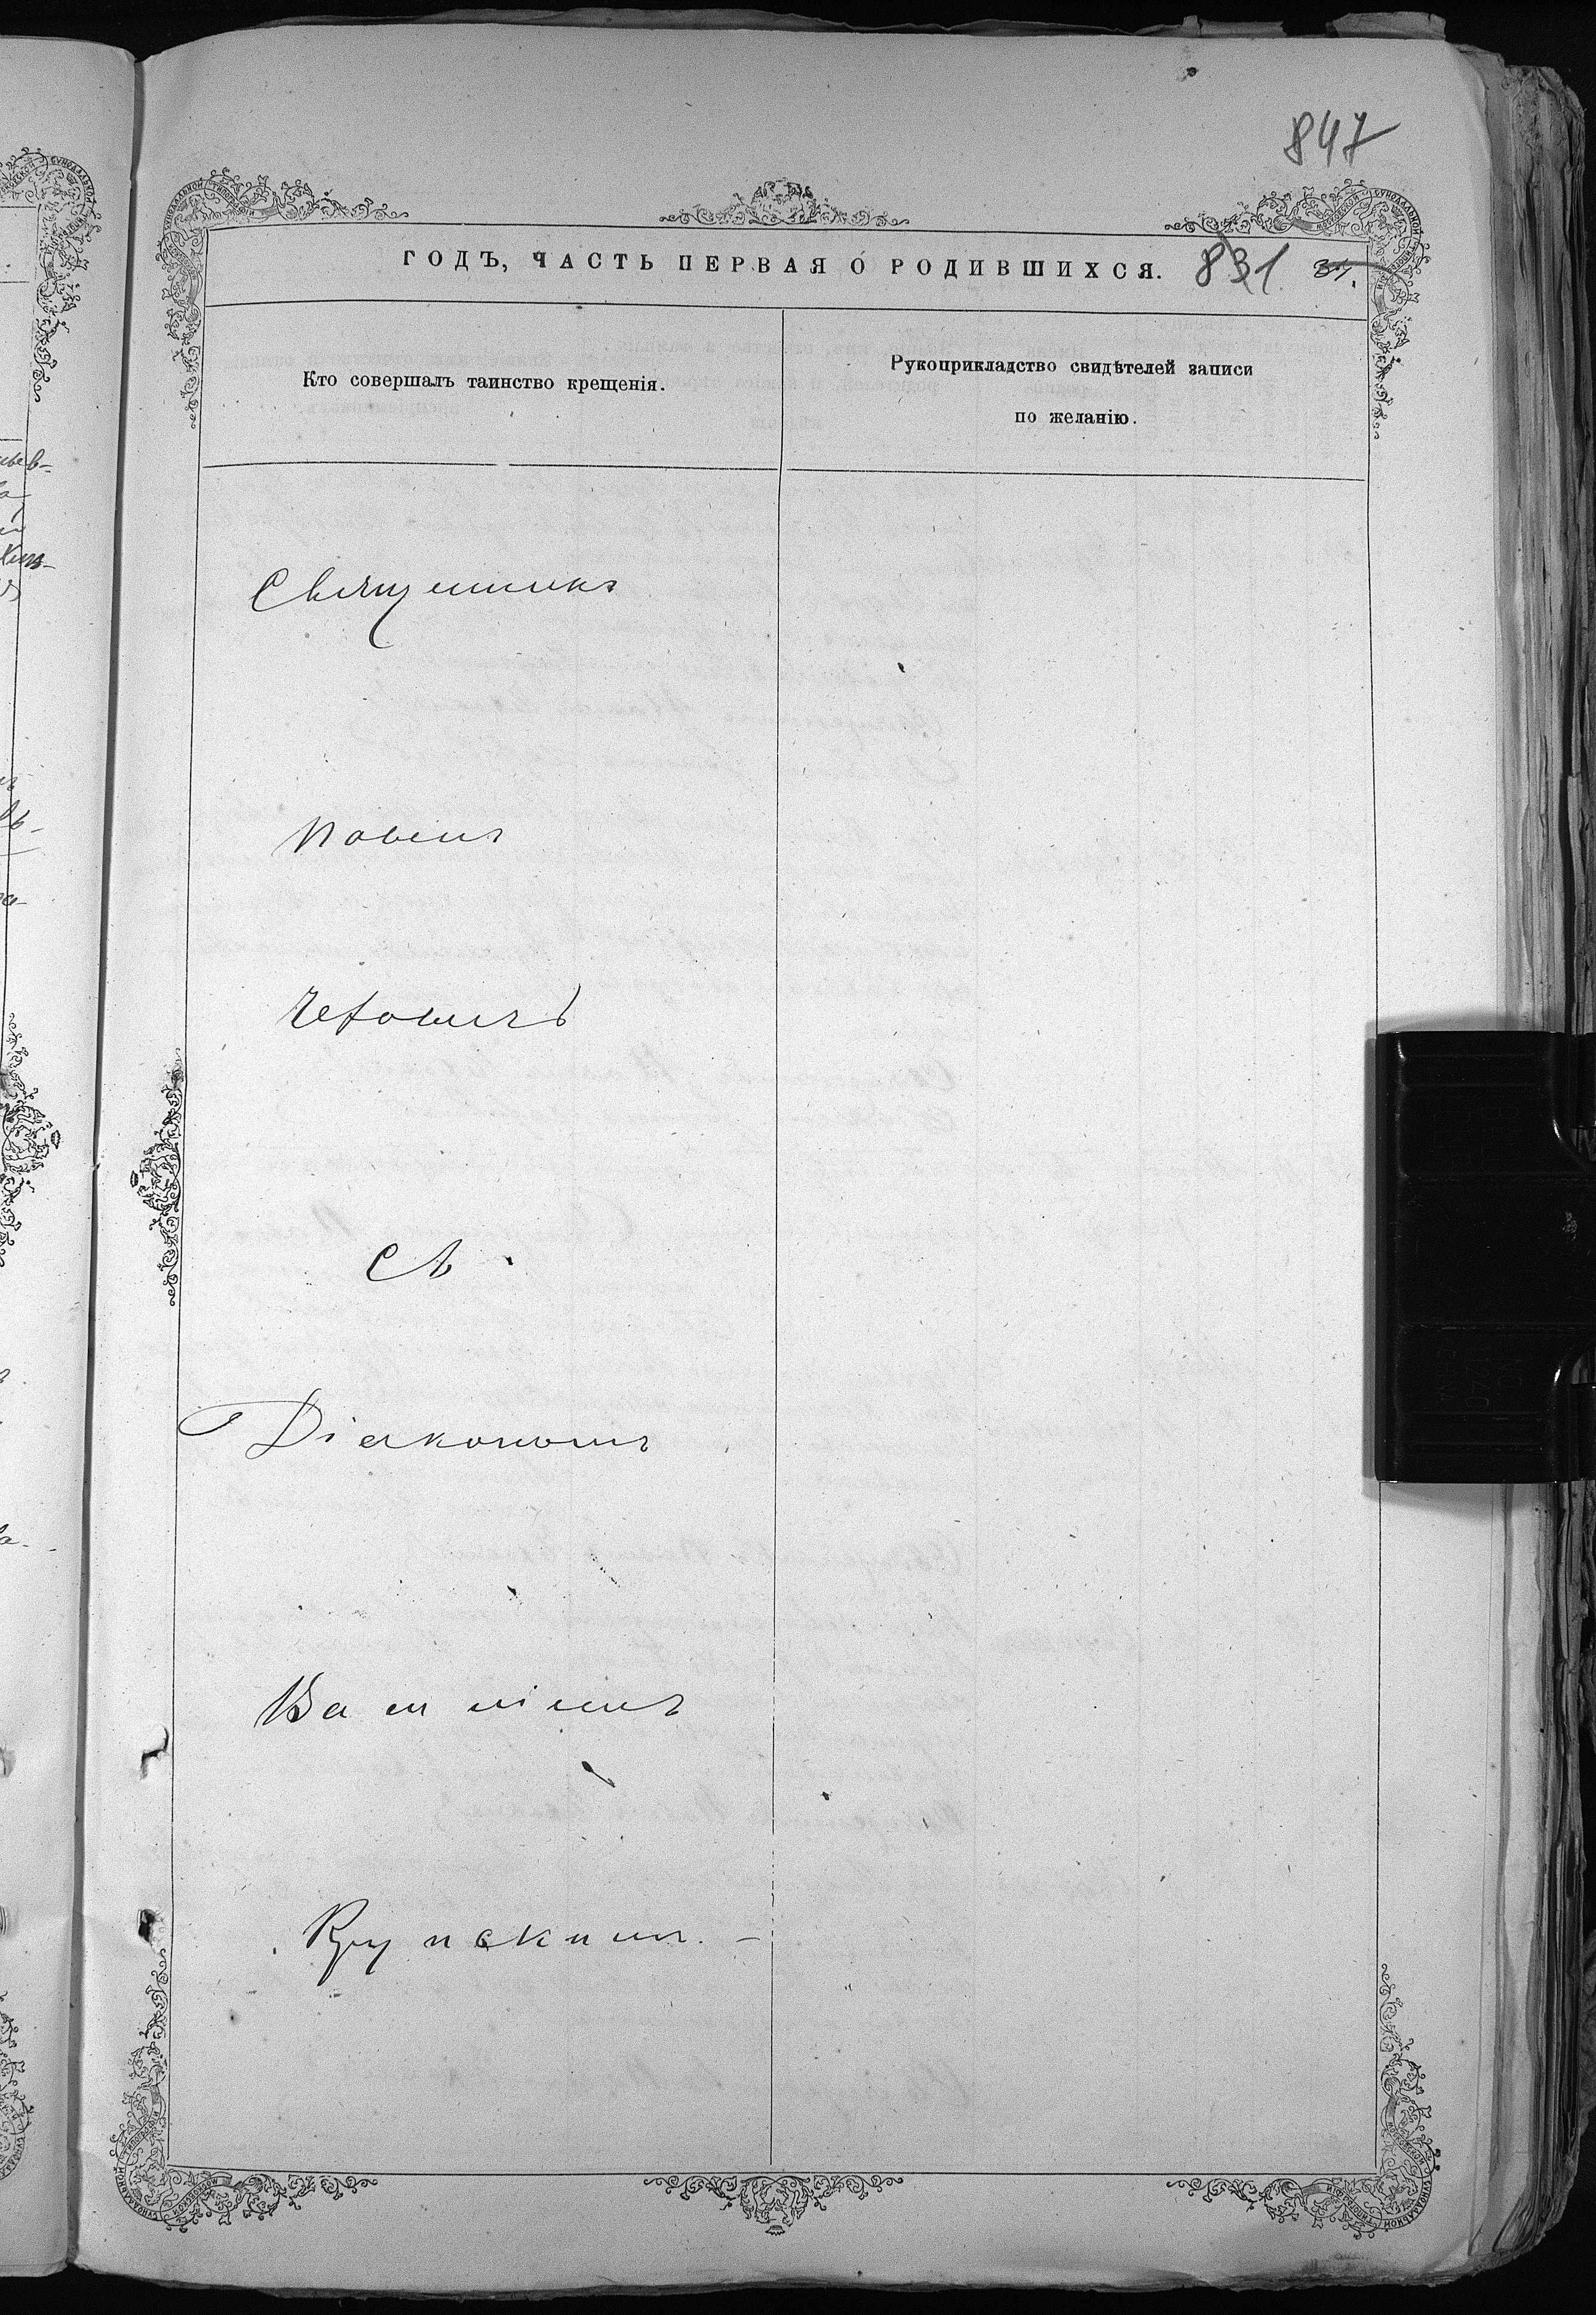 847
ГОДЪ, ЧАСТЬ ПЕРВАЯ О РОДИВШИХСЯ. 831. 37.
Кто совершалъ таинство крещенія.
Рукоприкладство свидѣтелей записи
по желанію.
Священникъ
Павелъ
Съ
Діакономъ
Крупскимъ. –